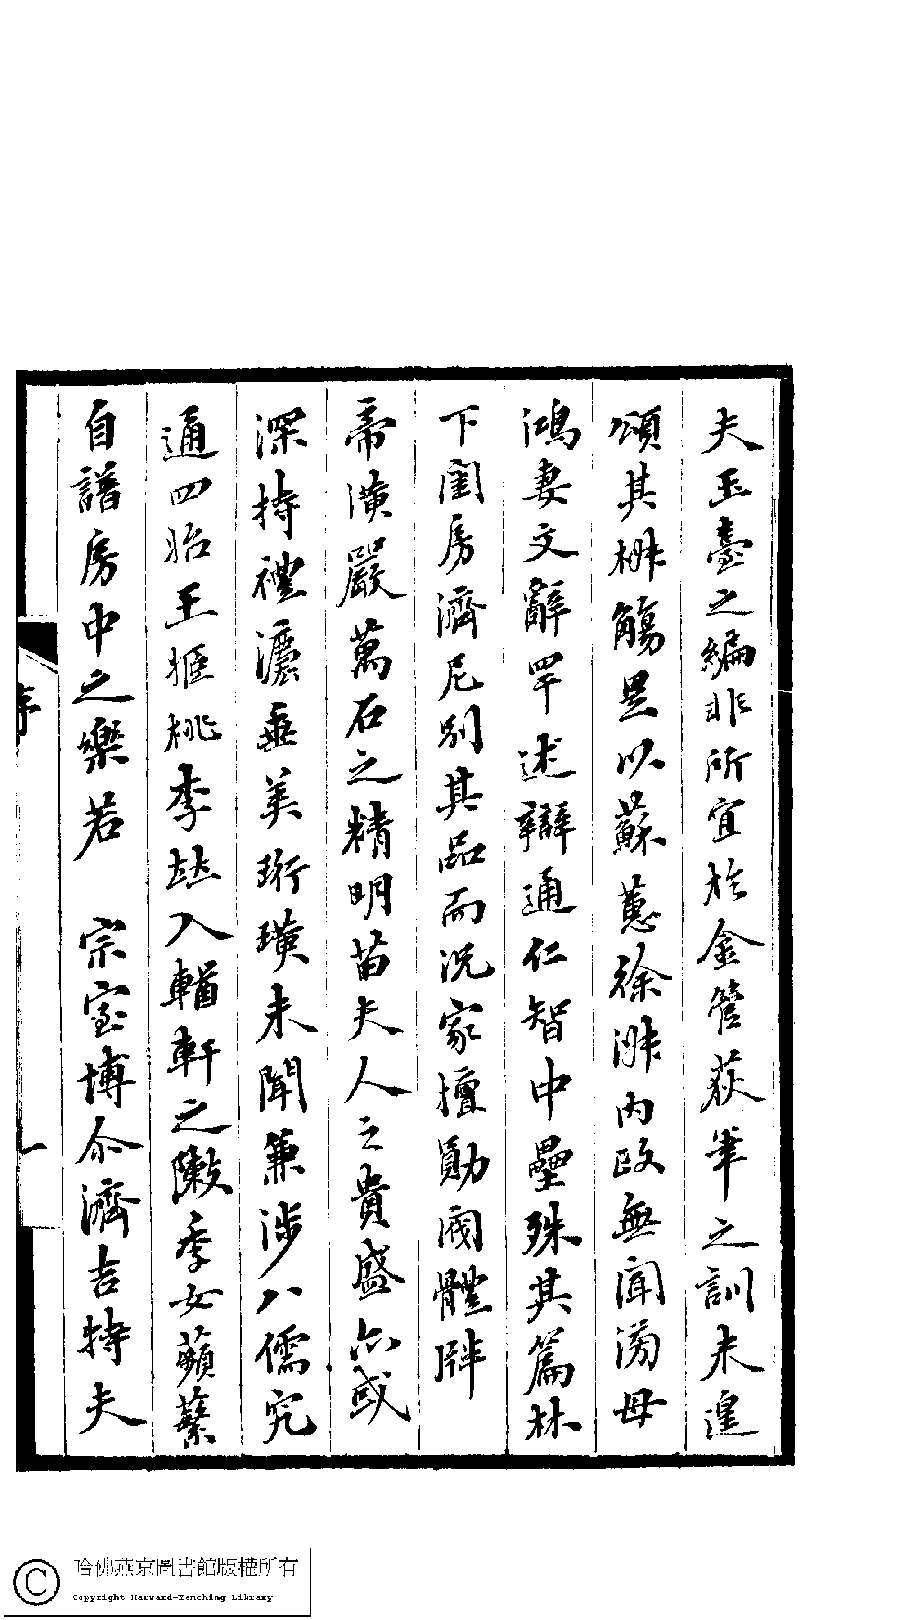 夫玉臺之編非所宜於金管荻筆之訓未遑
頌其椒觴是以蘇蕙徐淑內政無聞滂母
鴻妻文辭罕述辯通仁智中壘殊其篇林
下閨房濟尼別其品而況家擅勛閥體聯
帝潢嚴萬石之精明苗夫人之貴盛亦或
深持禮灋垂美珩璜未聞兼涉八儒究
通四始王姬桃李詎入輶軒之陬季女蘋蘩
自譜房中之樂若 宗室博尔濟吉特夫
序
一
哈佛燕京圖書館版權所有
Copyright Harvard-Yenching Library